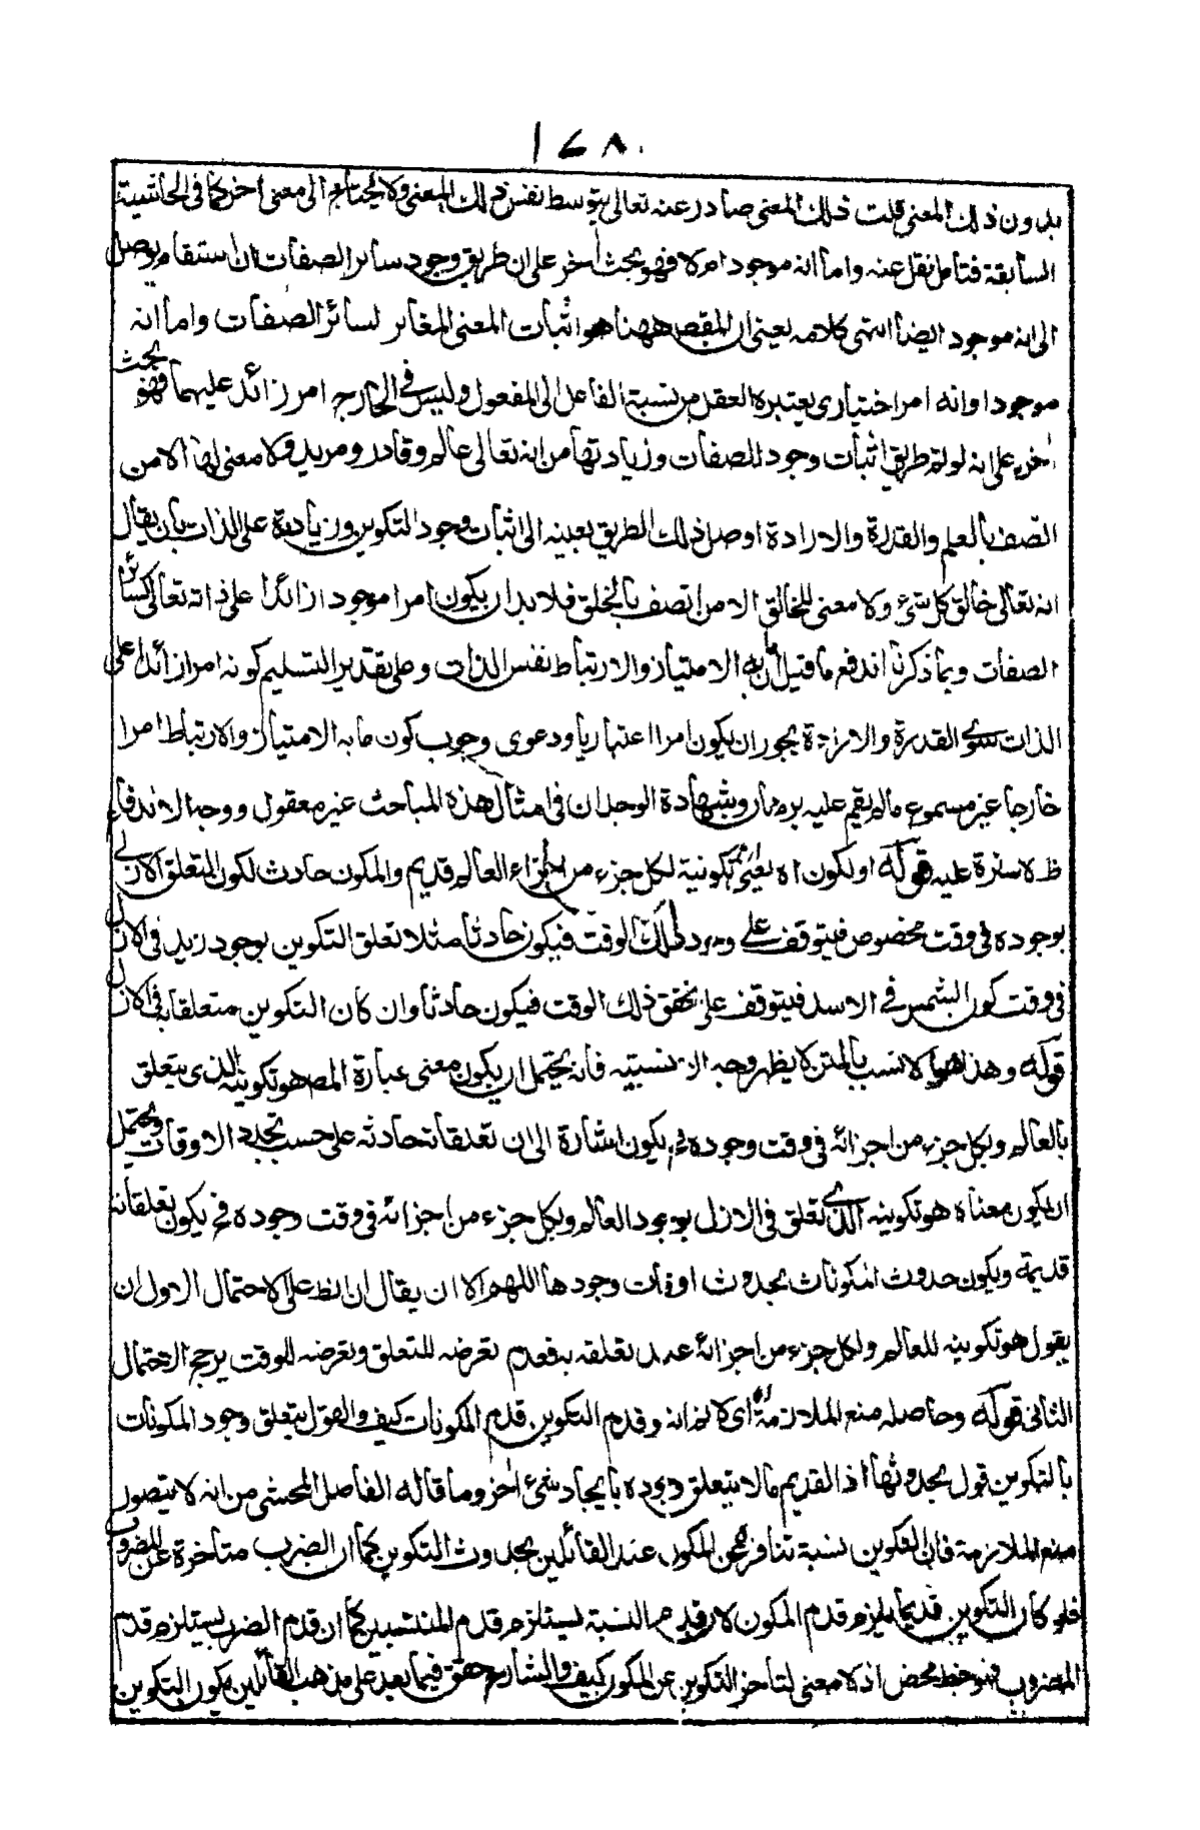 ١٤٨
بدون ذلك المعنى قلت ذلك المعنى صادر عنه تعالى بتوسط نفس ذلك المعنى ولا يحتاج الى معنى اخر كما في الحاشية
السابقة فتامل نقل عنه واما انه موجود ام لا فهو بحث اخر على ان طريق وجود سائر الصفات ان استقام يوصل
الى انه موجود ايضا انتهى كلامه يعني ان المقص ههنا هو اثبات المعنى المغاير لسائر الصفات واما انه
موجود او انه امر اختياري يعتبره العقل من نسبة الفاعل الى المفعول وليس في الخارج امر زائد عليهما فهو بحث
اخر على انه لو تم طريق اثبات وجود الصفات وزيادتها من انه تعالى عالم وقادر ومريد ولا معنى لها الا من
اتصف بالعلم والقدرة والارادة اوصل ذلك الطريق بعينه الى اثبات وجود التكوين وزيادته على الذات بان يقال
انه تعالى خالق كل شئ ولا معنى للخالق الا من اتصف بالخلق فلا بد ان يكون امرا موجودا زائدا على ذاته تعالى كسائر
الصفات وبما ذكرنا اندفع ما قيل ان ما به الامتياز والارتباط نفس الذات وعلى تقدير التسليم كونه امرا زائدا على
الذات سوى القدرة والارادة يجوز ان يكون امرا اعتباريا ودعوى وجوب كون ما به الامتياز والارتباط امرا
خارجا غير مسموع ما لم يقم عليه برهان وشهادة الوجدان في امثال هذه المباحث غير معقول ووجه الاندفاع
ظ لا سترة عليه قوله او لكون اه يعني ان تكوينية لكل جزء من اجزاء العالم قديم والمكون حادث لكون التعلق الازلي
بوجوده في وقت مخصوص فيتوقف على وجود ذلك الوقت فيكون حادثا مثلا تعلق التكوين بوجود زيد في الازل
في وقت كون الشمس في الاسد فيتوقف على تحقق ذلك الوقت فيكون حادثا وان كان التكوين متعلقا به في الازل
قوله وهذا هو الانسب بالمتن لا يظهر وجه الانسبية فانه يحتمل ان يكون معنى عبارة المص هو تكوينه الذي يتعلق
بالعالم ولكل جزء من اجزائه في وقت وجوده فح يكون اشارة الى ان تعلقاته حادثه على حسب تجدد الاوقات ويحتمل
ان يكون معناه هو تكوينه الذي تعلق في الازل بوجود العالم ولكل جزء من اجزائه في وقت وجوده فح يكون تعلقاته
قديمة ويكون حدوث المكونات بحدوث اوقات وجودها اللهم الا ان يقال ان الظ على الاحتمال الاول ان
يقول هو تكوينه للعالم ولكل جزء من اجزائه عند تعلقه به فعدم تعرضه للتعلق وتعرضه للوقت يرجح الاحتمال
الثاني قوله وحاصله منع الملازمة اه اي لا نم انه لو قدم التكوين قدم المكونات كيف والقول بتعلق وجود المكونات
بالتكوين قول بحدوثها اذ القديم ما لا يتعلق وجوده بايجاد شئ اخر وما قاله الفاضل المحشي من انه لا يتصور
منع الملازمة فان التكوين نسبة تتاخر عن المكون عند القائلين بحدوث التكوين كما ان الضرب متأخرة عن المضروب
فلو كان التكوين قديما يلزم قدم المكون لان قدم النسبة يستلزم قدم المنتسبين كما ان قدم الضرب يستلزم قدم
المضروب فهو خبط محض اذ لا معنى لتأخر التكوين عن المكون كيف والشارح حقق فيما بعد على مذهب القائلين بكون التكوين